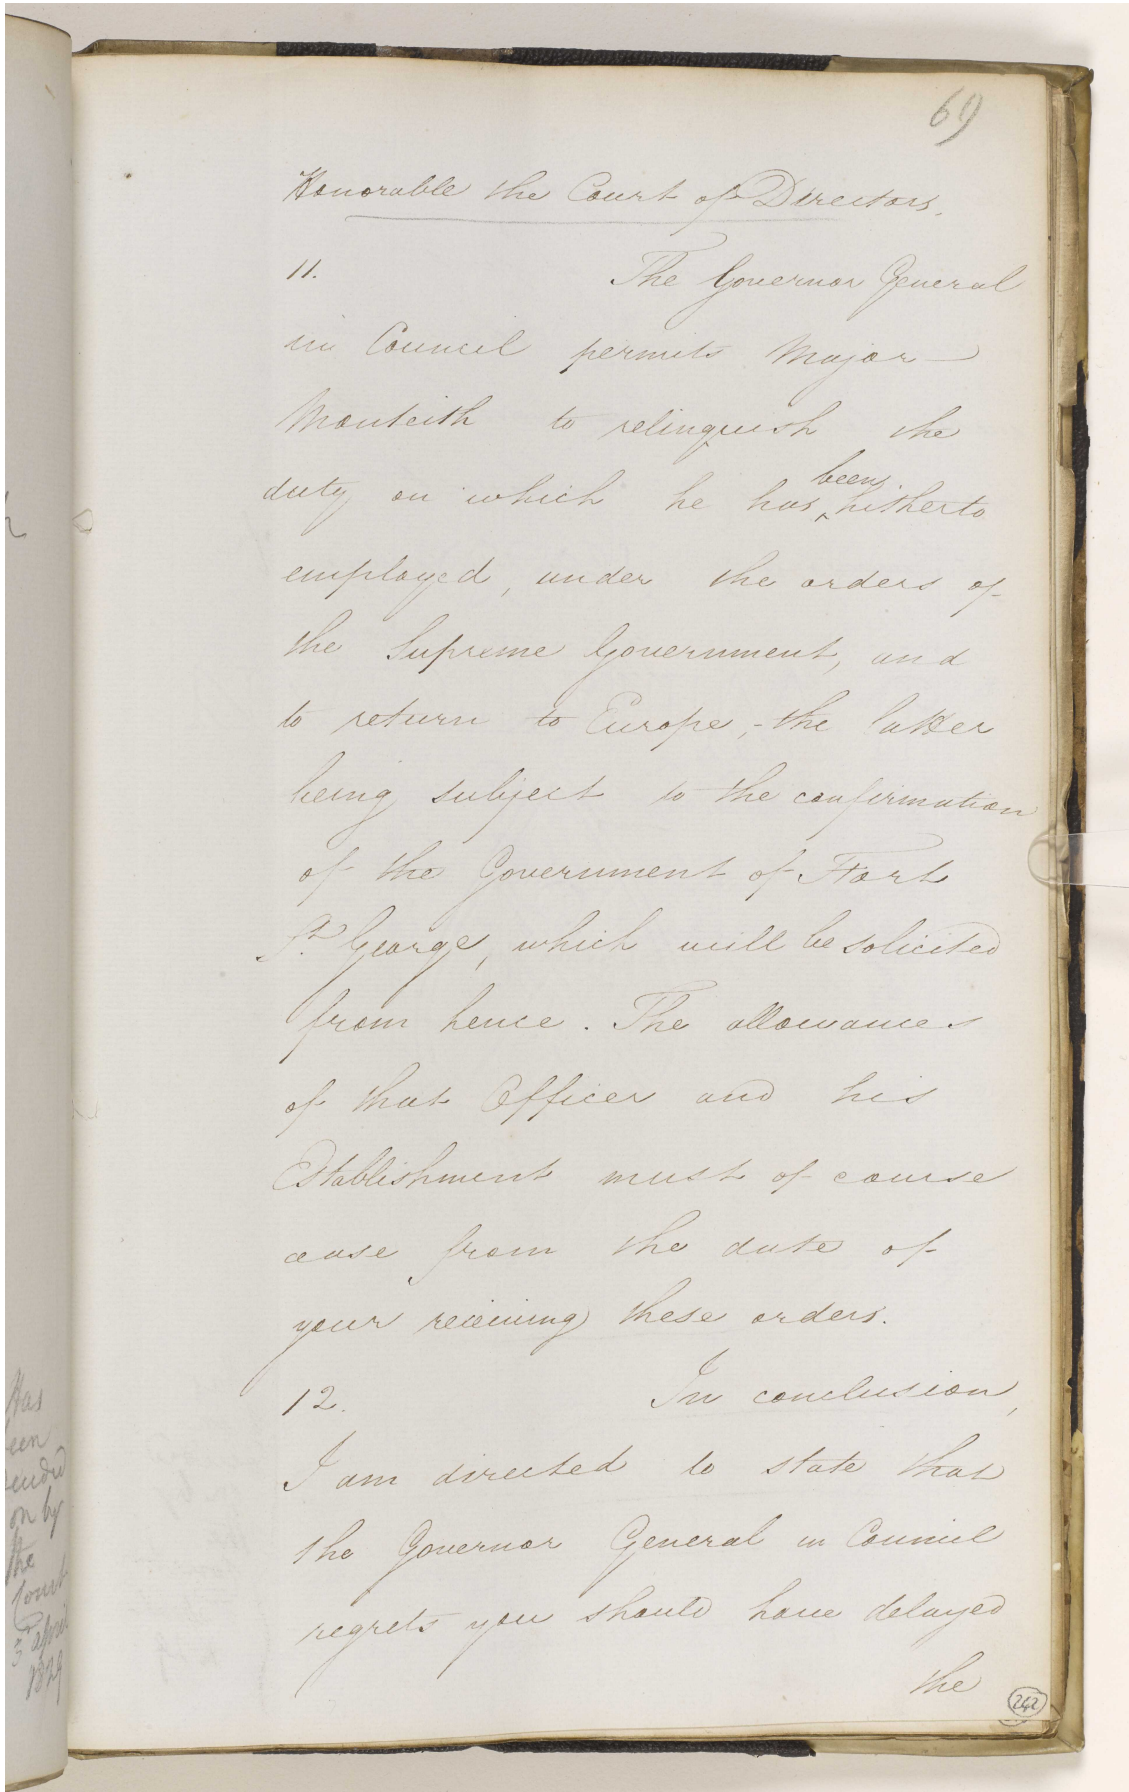 69
Honorable the Court of Directors.
11. The Governor General
in Council permits Major
Monteith to relinquish the
duty on which he has ^been hitherto
employed, under the orders of
the Supreme Government, and
to return to Europe, - the latter
being subject to the confirmation
of the Government of Fort
St. George, which will be solicited
from hence. The allowances
of that Officer and his
Establishment must of course
cease from the date of
your receiving these orders.
12. In conclusion,
I am directed to state that
the Governor General in Council
regrets you should have delayed
the
242
Has
een
on by
the
Court
3 April
1829